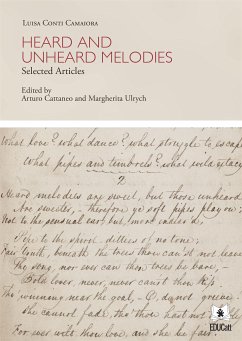 LUISA CONTI CAMAIORA
HEARD AND
UNHEARD MELODIES
Selected Articles
Edited by
Arturo Cattaneo and Margherita Ulrych
What love? what dance? what struggle to escape
What pipes and timbrels? what wild extacy
2
Heard melodies are sweet, but those unheard
Are sweeter, – therefore ye soft pipes play on
Not to the sensual ear; but, more indear'd,
Pipe to the spirit ditties of no tone;
Fair Youth, beneath the trees thou can'st not leave
Thy song, nor ever can those trees be bare,–
Bold lover, never never can'st thou kiss
The winning near the goal, – O, do not grieve
She cannot fade, tho' thou hast not thy bliss
For ever wilt thou love, and she be fair
EDUCatt